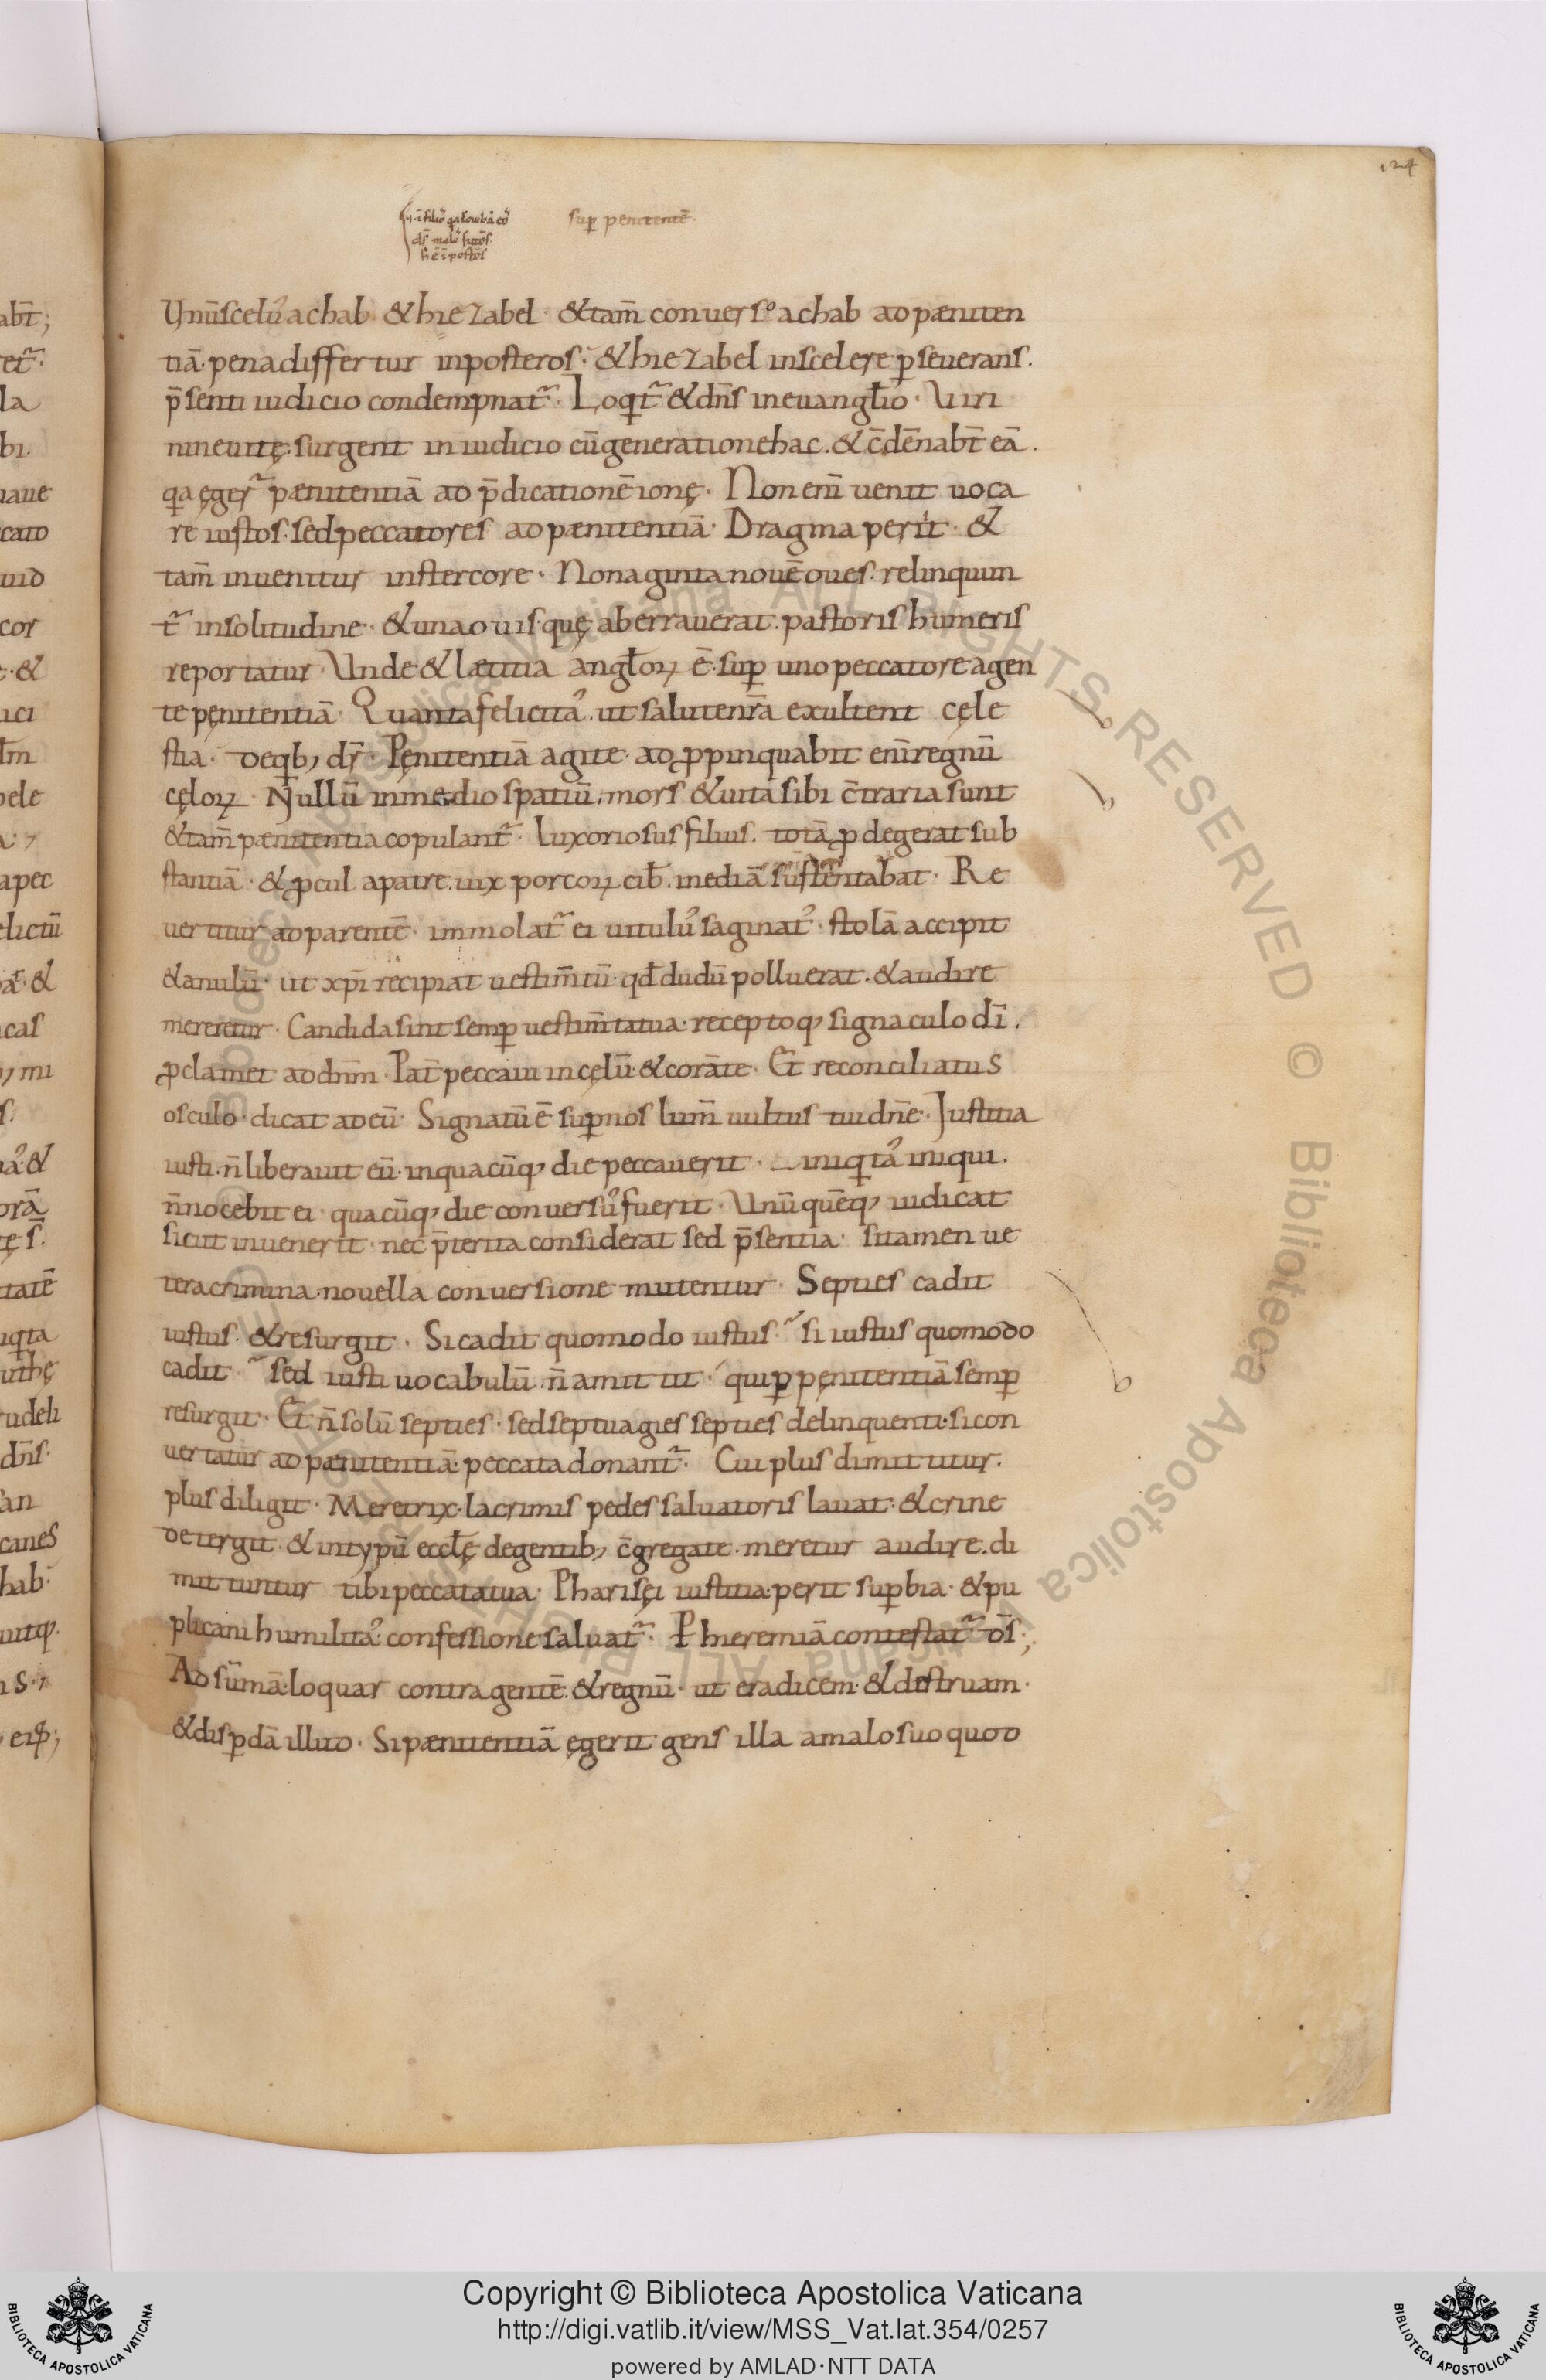 124
sup̱ penitentē·
Unū scelus᾽ achab· & hiezabel· & tam̄ converso achab ad pæniten
tiā· pena differtur in posteros· & hiezabel in scelere p̱severans.
p̄senti iudicio condempnat᷑· Loqt᷑ & dn̄s in evangl̄io· Viri
ninevitę· surgent in iudicio cū generatione hac. & c̄dēnabt̄ eā.
qa ęger᷑ pænitentiā ad p̄dicationē ionę· Non eni̅ venit voca
re iustos· sed peccatores ad pænitentiā· Dragma periit· &
tam̄ invenitur in stercore· Nonaginta novē oves· relinquun
t᷑ in solitudine· & una ovis· quę aberraverat· pastoris humeris
reportatur· Unde & lætitia angl̄oꝝ ē· sup̱ uno peccatore agen
te pęnitentiā· Quanta felicita᾽· ut salute nr̄a exultent cęle
stia· de qb; dr̄· Pęnitentiā agite· adꝓpinquabit eni̅ regnū
cęloꝝ· Nullū in medio spatiū· mors & vita sibi c̄traria sunt
& tam̄ pænitentia copulant᷑· luxoriosus filius· totā ꝓdegerat sub
stantiā· & ꝓcul a patre· vix porcoꝝ cib̄· inediā sustentabat· Re
vertitur ad parentē· immolat᷑ ei vitulu᾽ saginat᾽· stolā accipit
& anulū· ut xp̄i recipiat vestim̄tū· qd̄ dudū polluerat· & audire
mereretur· Candida sint semp̱ vestim̄ta tua· receptoq; signaculo dī.
ꝓclamet ad dn̄m· Pat̄ peccavi in cęlū & corā te· Et reconciliatus
osculo· dicat ad eū· Signatū ē sup̱ nos lum̄ vultus tui dn̄e· Justitia
iusti· n̄ liberavit eū· in quacūq; die peccaverit· iniqta᾽ iniqui.
n̄ nocebit ei· quacūq; die conversu᾽ fuerit· Unū quēq; iudicat
sicut invenerit· nec p̄terita considerat sed p̄sentia· si tamen ve
tera crimina· novella conversione mutentur· Septies cadit
iustus· & resurgit· Si cadit quomodo iustus· si iustus quomodo
cadit· sed iusti vocabulū n̄ amittit· qui p̱ pęnitentiā semp̱
resurgit· Et n̄ solū septies· sed septuagies septies delinquenti· si con
vertatur ad pænitentiā· peccata donant᷑· Cui plus dimittitur·
plus diligit· Meretrix· lacrimis pedes salvatoris lavat· & crine
detergit· & in typū eccl̄ę de gentib; c̄gregatę· meretur audire· di
mittuntur tibi peccata tua· Pharisęi iustitia· perit sup̱bia· & pu
plicani humilita᾽ confessione salvat᷑· P̱ hieremiā contestat᷑ d̄s·
Ad sūmā· loquar contra gentē· & regnū· ut eradicem· & destruam·
& disp̱dā illud· Si pænitentiā ęgerit gens illa a malo suo quod
Copyright © Biblioteca Apostolica Vaticana
http://digi.vatlib.it/view/MSS_Vat.lat.354/0257
powered by AMLAD·NTT DATA